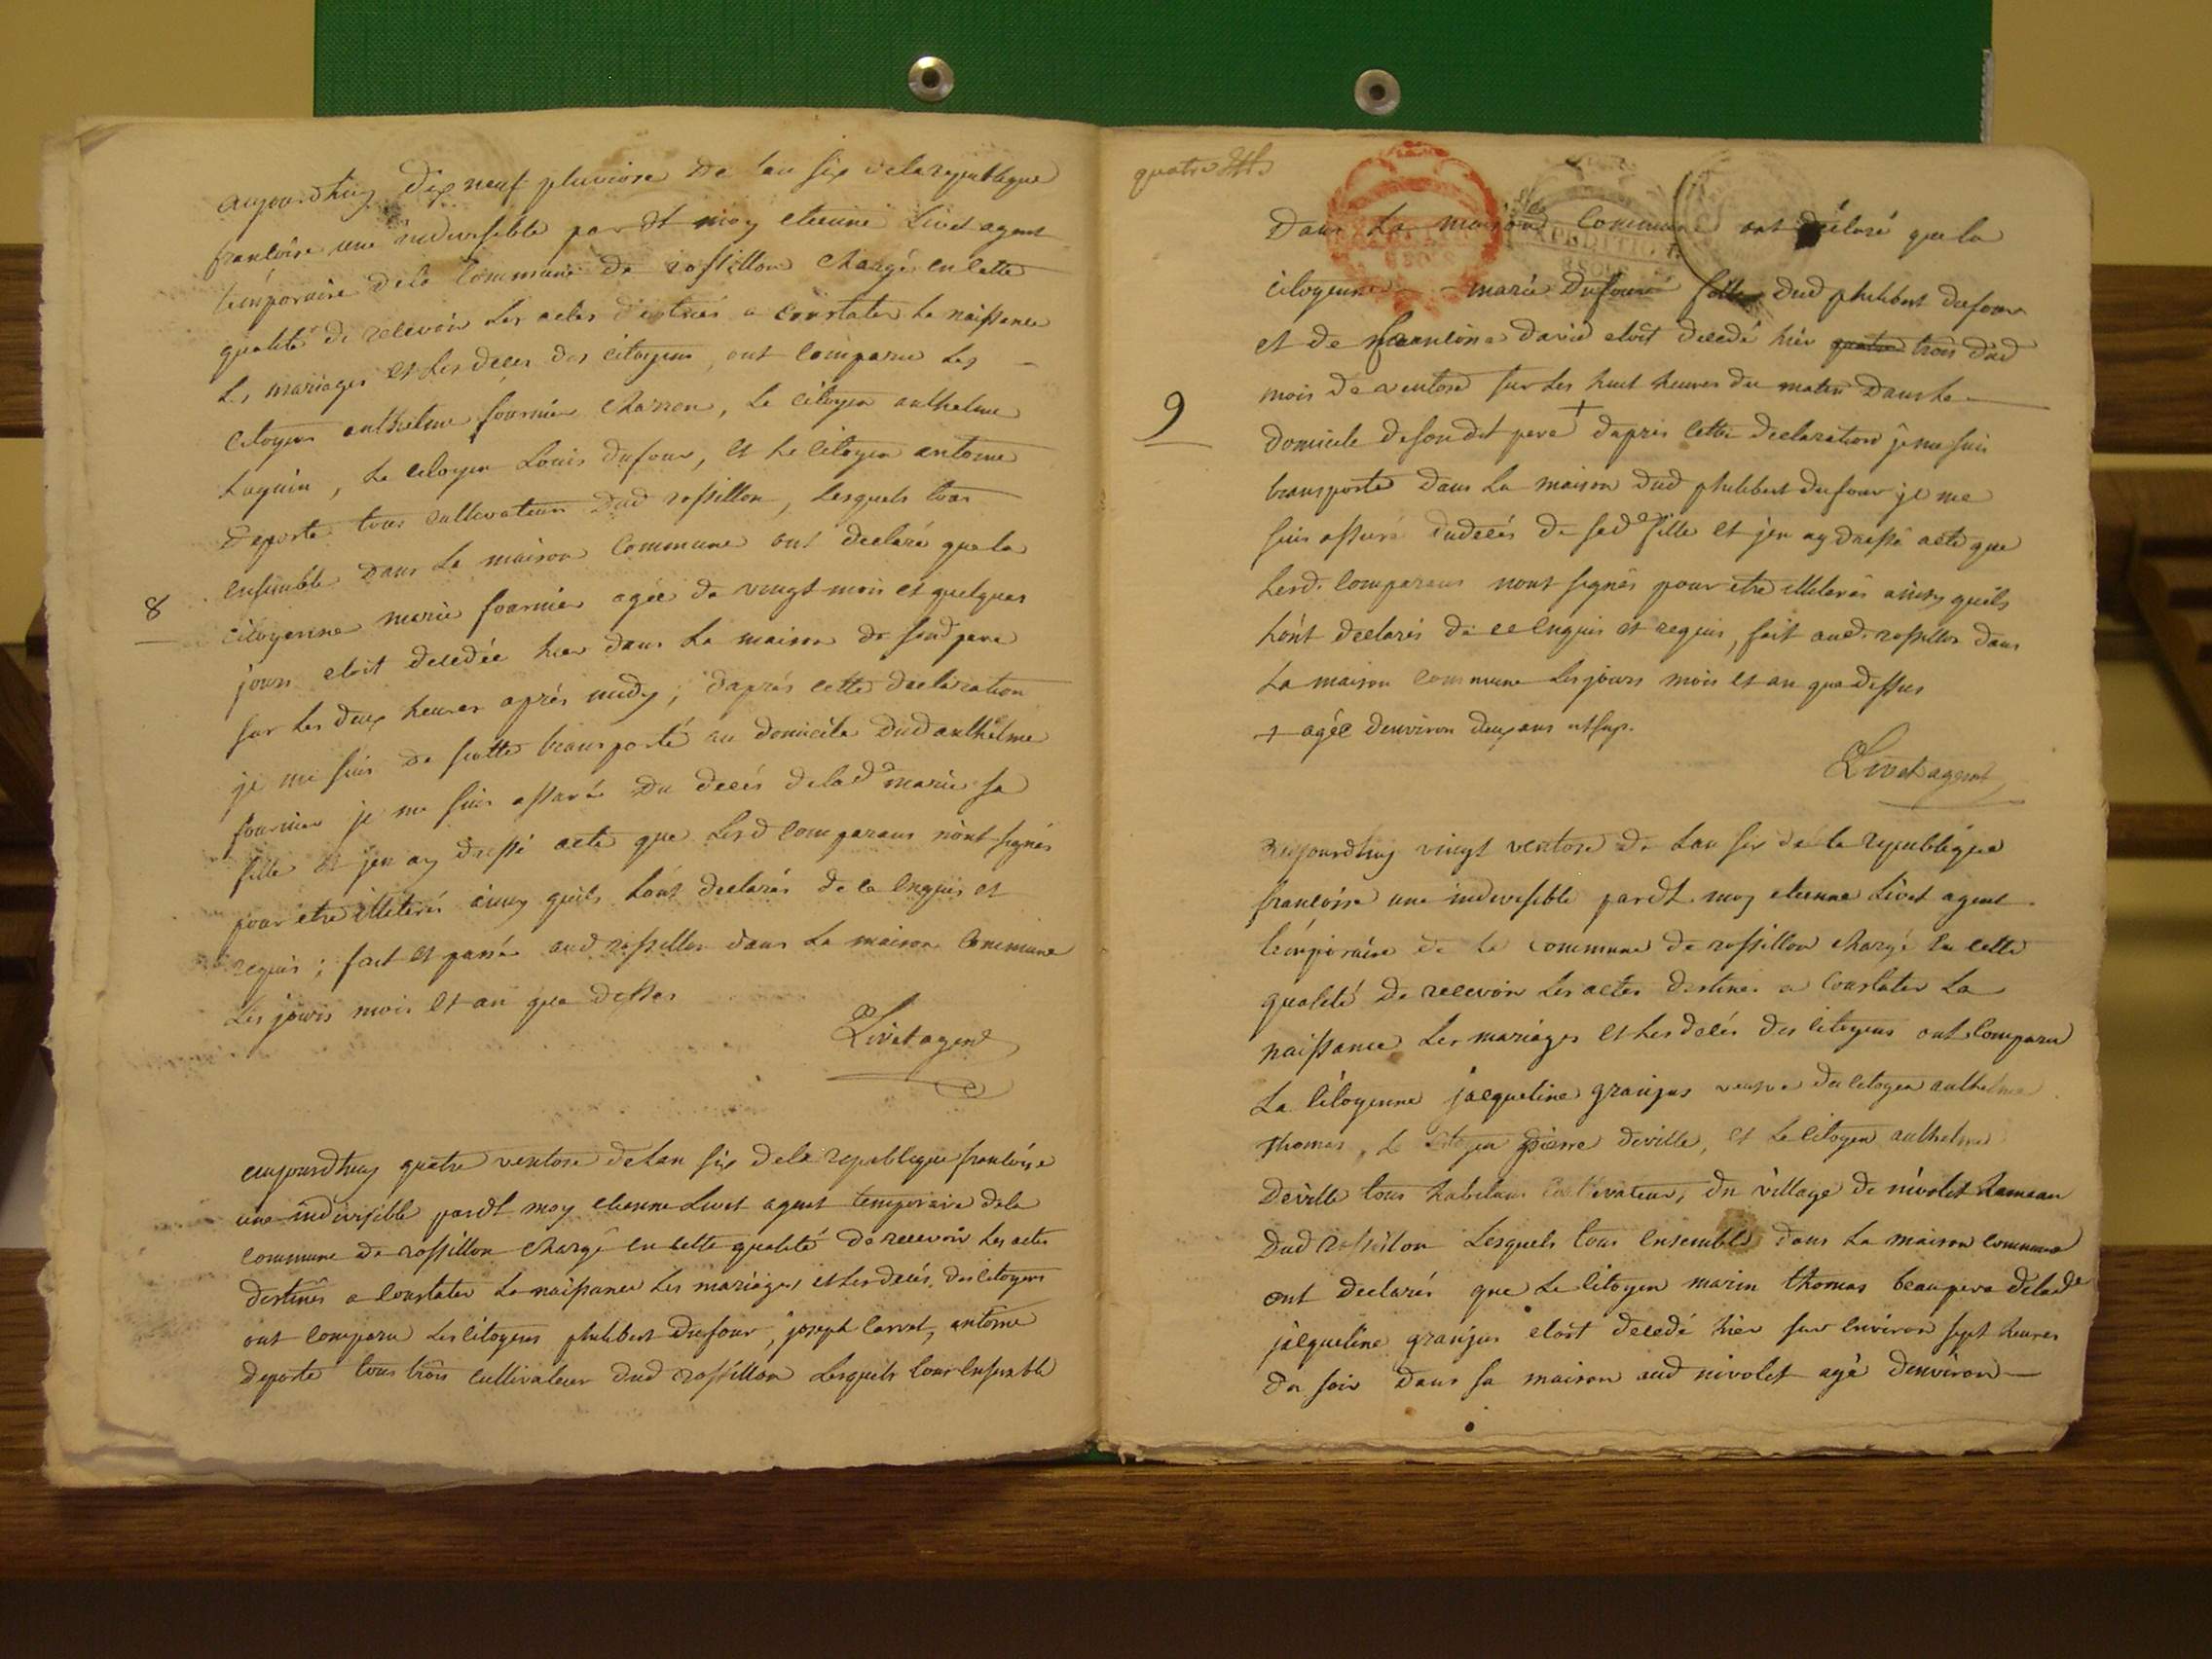 aujourdhuy dix neuf pluviose de l'an six de la republique
francoise une indivisible par dt moy etienne Livet agent
temporaire de la commune de rossillon chargé en cette
qualité de recevoir les actes destinés a constater la naissance
les mariages et les deces des citoyens, ont comparu les
citoyens anthelme fournier charron, le citoyen anthelme
Luguin, le citoyen Louis dufour, et le citoyen antoine
deporte tous cultivateurs dud rossillon, lesquels tous
ensemble dans la maison commune ont declaré que la
8
citoyenne marie fournier agée de vingt mois et quelques
jours etoit decedée hier dans la maison de sond pere
sur les deux heures après midy; daprès cette declaration
je me suis de suitte transporté au domicile dud anthelme
fournier je me suis assuré du decés de lad marie sa
fille et jen ay dressé acte que lesd comparans n'ont signés
pour etre illeterés ainsy quils l'ont declarés de ce enquis et
requis; fait et passé aud rossillon dans la maison commune
les jours mois et an que dessus
Livet agent
aujourdhuy quatre ventose de l'an six de la republique francoise
une indivisible par dt moy etienne Livet agent temporaire de la
commune de rossillon chargé en cette qualité de recevoir les actes
destinés a constater la naissance les mariages et les decés des citoyens
ont comparu les citoyens philibert dufour, joseph Carrel, antoine
deporte tous trois cultivateur dud rossillon lesquels tous ensemble
quatre
dans la maison commune ont déclaré que la
citoyenne marie dufour fille dud philibert dufour
et de francoise david etoit decedé hier quatre trois dud
mois de ventose sur les huit heures du matin dans le
9
domicile de son dit pere + daprès cette declaration je me suis
transporté dans la maison dud philibert dufour je me
suis assuré du decés de sad fille et jen ay dressé acte que
lesd. comparans nont signés pour etre illeterés ainsy quils
l'ont declarés de ce enquis et requis, fait aud. rossillon dans
la maison commune les jours mois et an que dessus
+ agée denviron deux ans
Livet agent
aujourdhuy vingt ventose de l'an six de la republique
francoise une indivisible par dt moy etienne Livet agent
temporaire de la commune de rossillon chargé en cette
qualité de recevoir les actes destines a constater la
naissance les mariages et les decés des citoyens ont comparu
la citoyenne jacqueline granjus veuve du citoyen anthelme
thomas, le citoyen pierre deville, et le citoyen anthelme
deville tous habitans cultivateur, du village de nivolet hameau
dud rossillon lesquels tous ensemble dans la maison commune
ont declarés que le citoyen marin thomas beau pere de lade
jacqueline granjus etoit decedé hier sur environ sept heures
du soir dans sa maison aud nivolet agé denviron